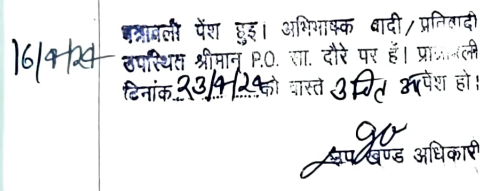 16/9/24
पत्रावली पेंश हुइ। अभिभाषक वादी/प्रतिवादी
उपस्थित श्रीमान् P.O. सा. दौरे पर हैं। पत्रावली
दिनांक 23/9/24 को वास्ते उचित आ पेंश हो।
उप खण्ड अधिकारी